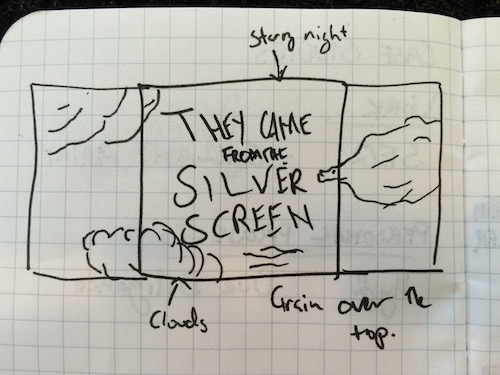 Starry night
THEY CAME
FROM THE
SILVER
SCREEN
Clouds
Grain over the
top.